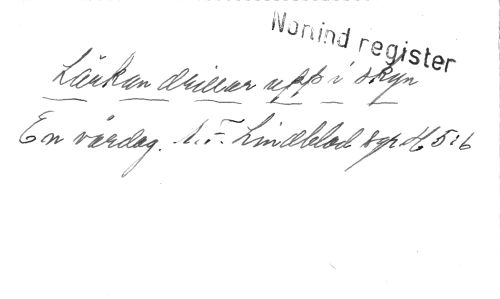 Nonind register
Lärkan drillar upp i skyn
En vårdag. A.F. Lindblad syr H 5:6